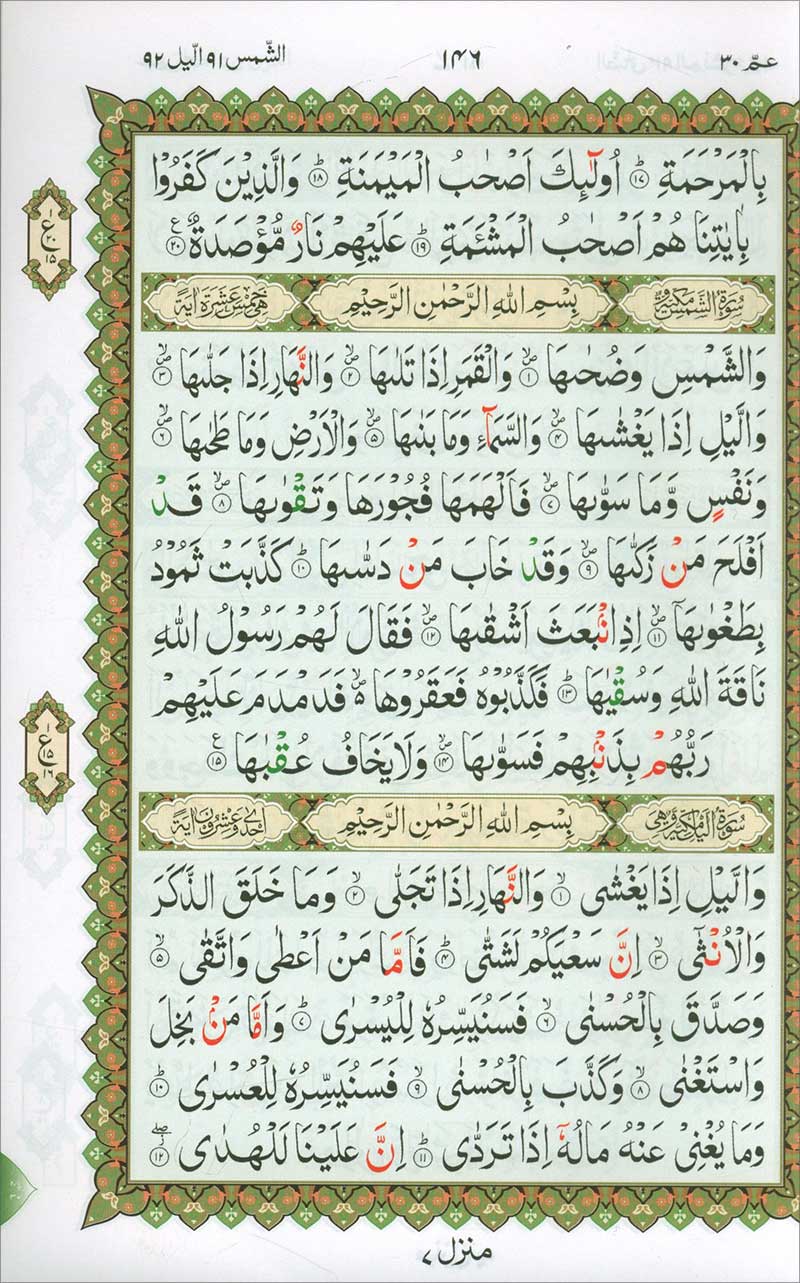 عمّ ٣٠ ١٤٦ الشّمس ٩١ الّيل ٩٢
بِالْمَرْحَمَةِ ؕ‏ ﴿۱۷﴾ اُولٰٓئِكَ اَصْحٰبُ الْمَيْمَنَةِ ؕ‏ ﴿۱۸﴾ وَالَّذِيْنَ كَفَرُوْا
بِاٰيٰتِنَا هُمْ اَصْحٰبُ الْمَشْئَمَةِ ؕ‏ ﴿۱۹﴾ عَلَيْهِمْ نَارٌ مُّؤْصَدَةٌ ﴿۲۰﴾ ع
سُوْرَةُ الشَّمْسِ مَكِّيَّةٌ وَّهِيَ بِسْمِ اللهِ الرَّحْمٰنِ الرَّحِيْمِ خَمْسَ عَشْرَةَ اٰيَةً
وَالشَّمْسِ وَضُحٰىهَا ۙ‏ ﴿۱﴾ وَالْقَمَرِ اِذَا تَلٰىهَا ۙ‏ ﴿۲﴾ وَالنَّهَارِ اِذَا جَلّٰىهَا ۙ‏ ﴿۳﴾
وَالَّيْلِ اِذَا يَغْشٰىهَا ۙ‏ ﴿۴﴾ وَالسَّمَآءِ وَمَا بَنٰىهَا ۙ‏ ﴿۵﴾ وَالْاَرْضِ وَمَا طَحٰىهَا ۙ‏ ﴿۶﴾
وَنَفْسٍ وَّمَا سَوّٰىهَا ۙ‏ ﴿۷﴾ فَاَلْهَمَهَا فُجُوْرَهَا وَتَقْوٰىهَا ۙ‏ ﴿۸﴾ قَدْ
اَفْلَحَ مَنْ زَكّٰىهَا ۙ‏ ﴿۹﴾ وَقَدْ خَابَ مَنْ دَسّٰىهَا ؕ‏ ﴿۱۰﴾ كَذَّبَتْ ثَمُوْدُ
بِطَغْوٰىهَآ ۙ‏ ﴿۱۱﴾ اِذِ انْۢبَعَثَ اَشْقٰىهَا ۙ‏ ﴿۱۲﴾ فَقَالَ لَهُمْ رَسُوْلُ اللهِ
نَاقَةَ اللهِ وَسُقْيٰهَا ؕ‏ ﴿۱۳﴾ فَكَذَّبُوْهُ فَعَقَرُوْهَا ۙ فَدَمْدَمَ عَلَيْهِمْ
رَبُّهُمْ بِذَنْۢبِهِمْ فَسَوّٰىهَا ۙ‏ ﴿۱۴﴾ وَلَا يَخَافُ عُقْبٰهَا ﴿۱۵﴾ ع
سُوْرَةُ الَّيْلِ مَكِّيَّةٌ وَّهِيَ بِسْمِ اللهِ الرَّحْمٰنِ الرَّحِيْمِ اِحْدٰى وَعِشْرُوْنَ اٰيَةً
وَالَّيْلِ اِذَا يَغْشٰى ۙ‏ ﴿۱﴾ وَالنَّهَارِ اِذَا تَجَلّٰى ۙ‏ ﴿۲﴾ وَمَا خَلَقَ الذَّكَرَ
وَالْاُنْثٰٓى ۙ‏ ﴿۳﴾ اِنَّ سَعْيَكُمْ لَشَتّٰى ؕ‏ ﴿۴﴾ فَاَمَّا مَنْ اَعْطٰى وَاتَّقٰى ۙ‏ ﴿۵﴾
وَصَدَّقَ بِالْحُسْنٰى ۙ‏ ﴿۶﴾ فَسَنُيَسِّرُهٗ لِلْيُسْرٰى ؕ‏ ﴿۷﴾ وَاَمَّا مَنْۢ بَخِلَ
وَاسْتَغْنٰى ۙ‏ ﴿۸﴾ وَكَذَّبَ بِالْحُسْنٰى ۙ‏ ﴿۹﴾ فَسَنُيَسِّرُهٗ لِلْعُسْرٰى ؕ‏ ﴿۱۰﴾
وَمَا يُغْنِيْ عَنْهُ مَالُهٗٓ اِذَا تَرَدّٰى ؕ‏ ﴿۱۱﴾ اِنَّ عَلَيْنَا لَلْهُدٰى ۖ‏ ﴿۱۲﴾
منزل ٧